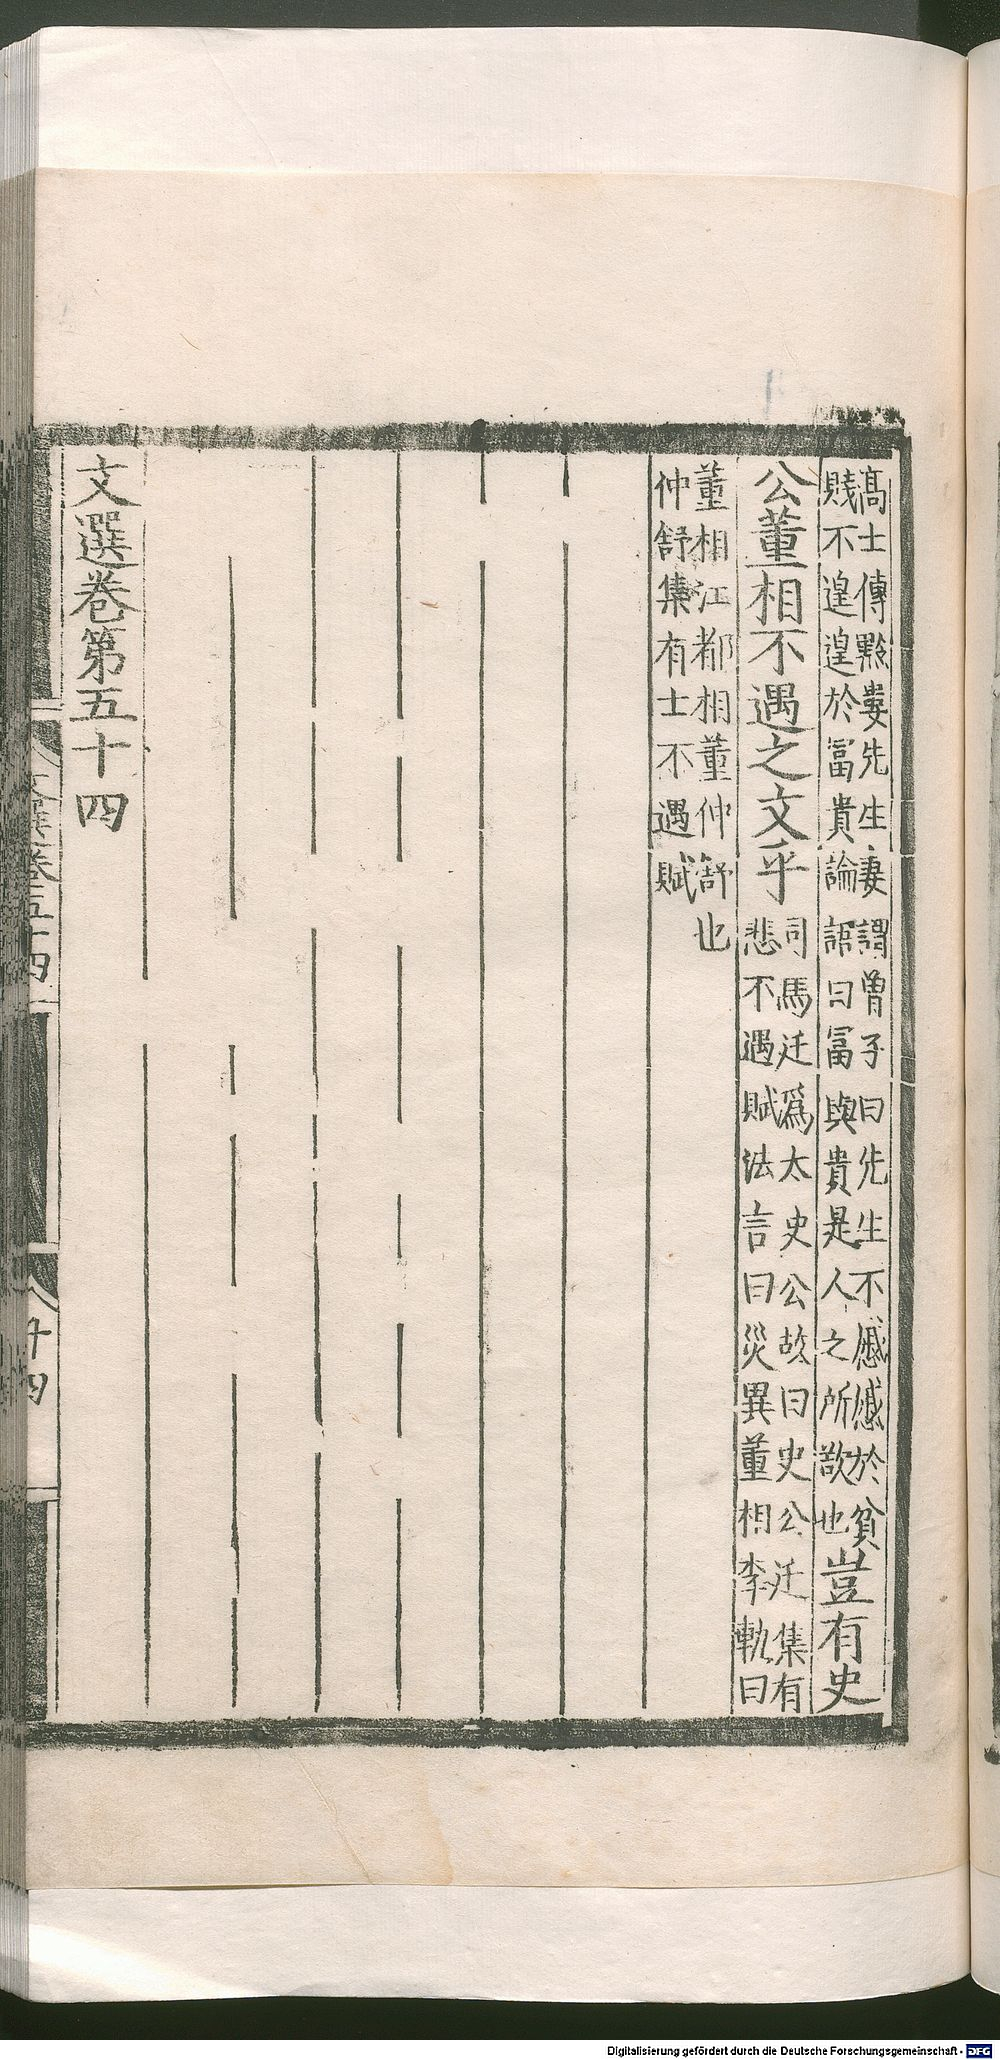 高士傳黔婁先生妻謂曾子曰先生不慼慼於貧
賤不遑遑於冨貴論語曰冨與貴是人之所欲也豈有史
公董相不遇之文乎司馬迁爲太史公故曰史公迁集有
悲不遇賦法言曰災異董相李軌曰
董相江都相董仲舒也
仲舒集有士不遇賦
文選卷第五十四
文選卷五十四
廿四
Digitalisierung gefördert durch die Deutsche Forschungsgemeinschaft - DFG